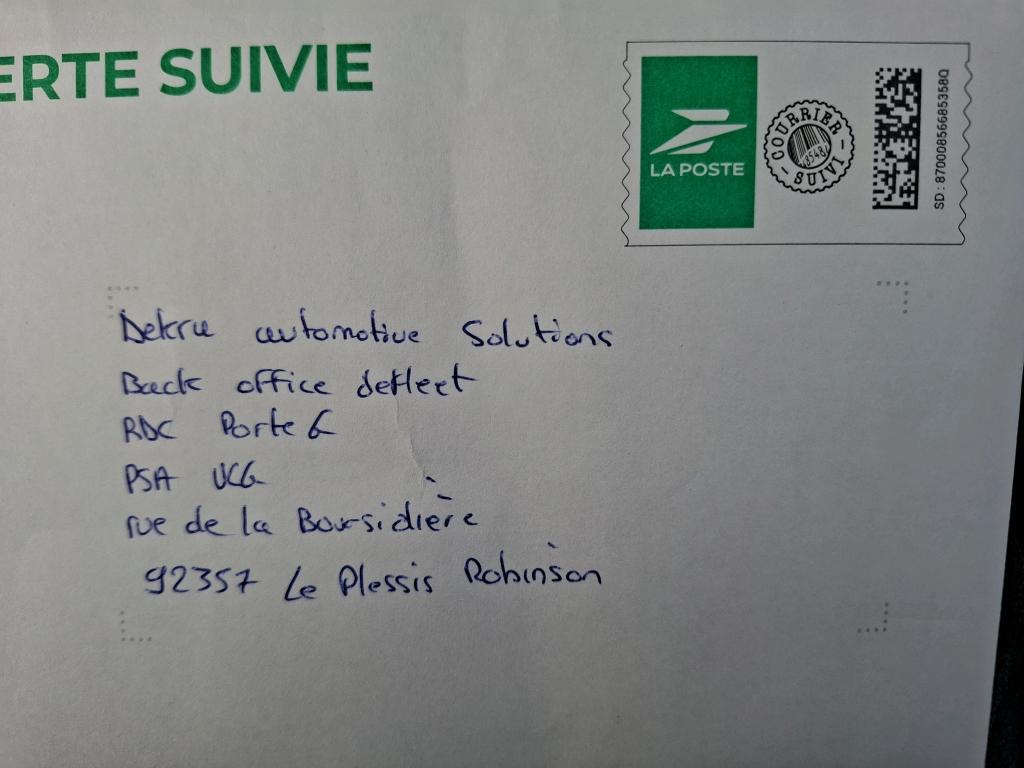 ERTE SUIVIE
LA POSTE
COURRIER
SUIVI
SD : 87000856685358Q
Dekra automotive Solutions
Back office defleet
RDC Porte G
PSA UCG
rue de la Boursidière
92357 Le Plessis Robinson